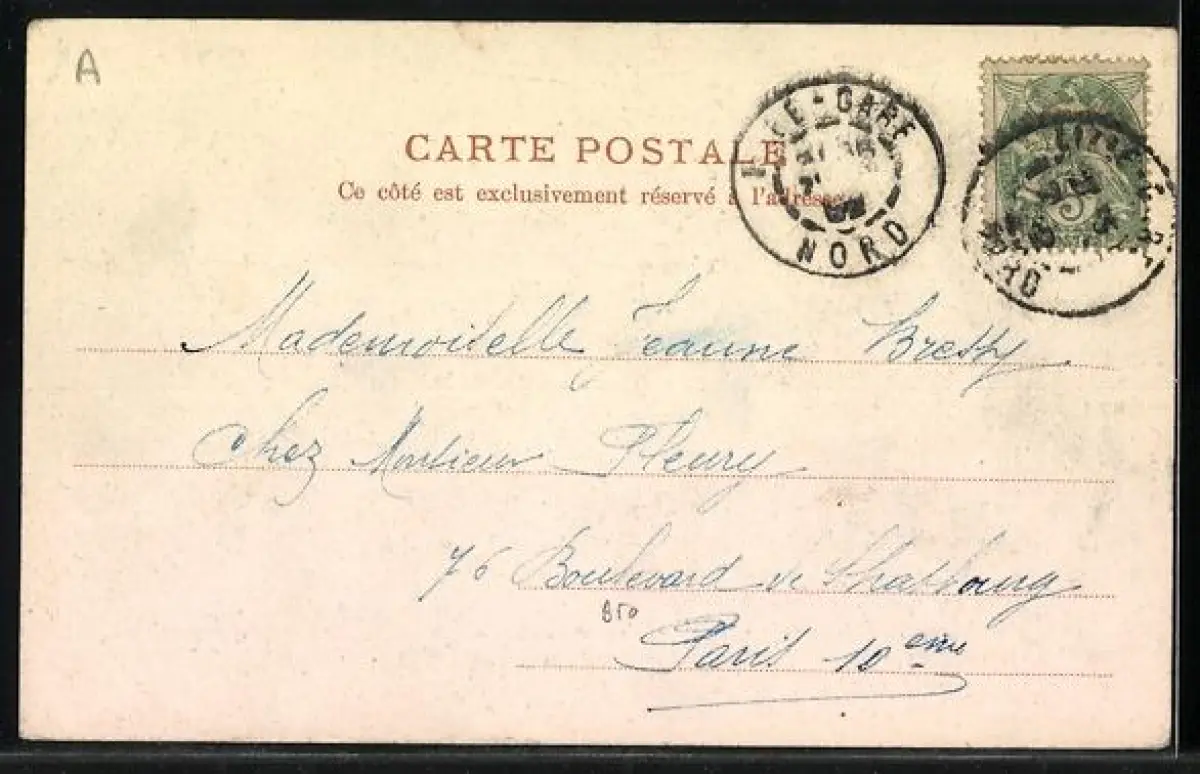 A
CARTE POSTALE
Ce côté est exclusivement réservé à l'adresse
LILLE-GARE
NORD
5
Mademoiselle Jeanne
chez Monsieur Fleury
76 Boulevard de Strasbourg
850
Paris 10eme